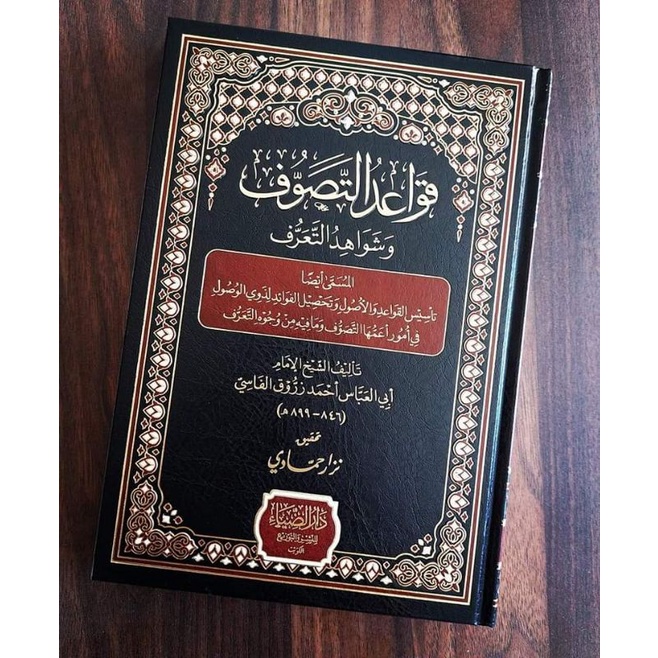 قواعد التصوف
وشواهد التعرف
المسمى أيضًا
تأسيس القواعد والأصول وتحصيل الفوائد لذوي الوصول
في أمور أعمها التصوف وما فيه من وجوه التعرف
تأليف الشيخ الإمام
أبي العباس أحمد زروق الفاسي
(٨٤٦-٨٩٩هـ)
تحقيق
نزار حمادي
دار الضياء
للنشر والتوزيع
الكويت